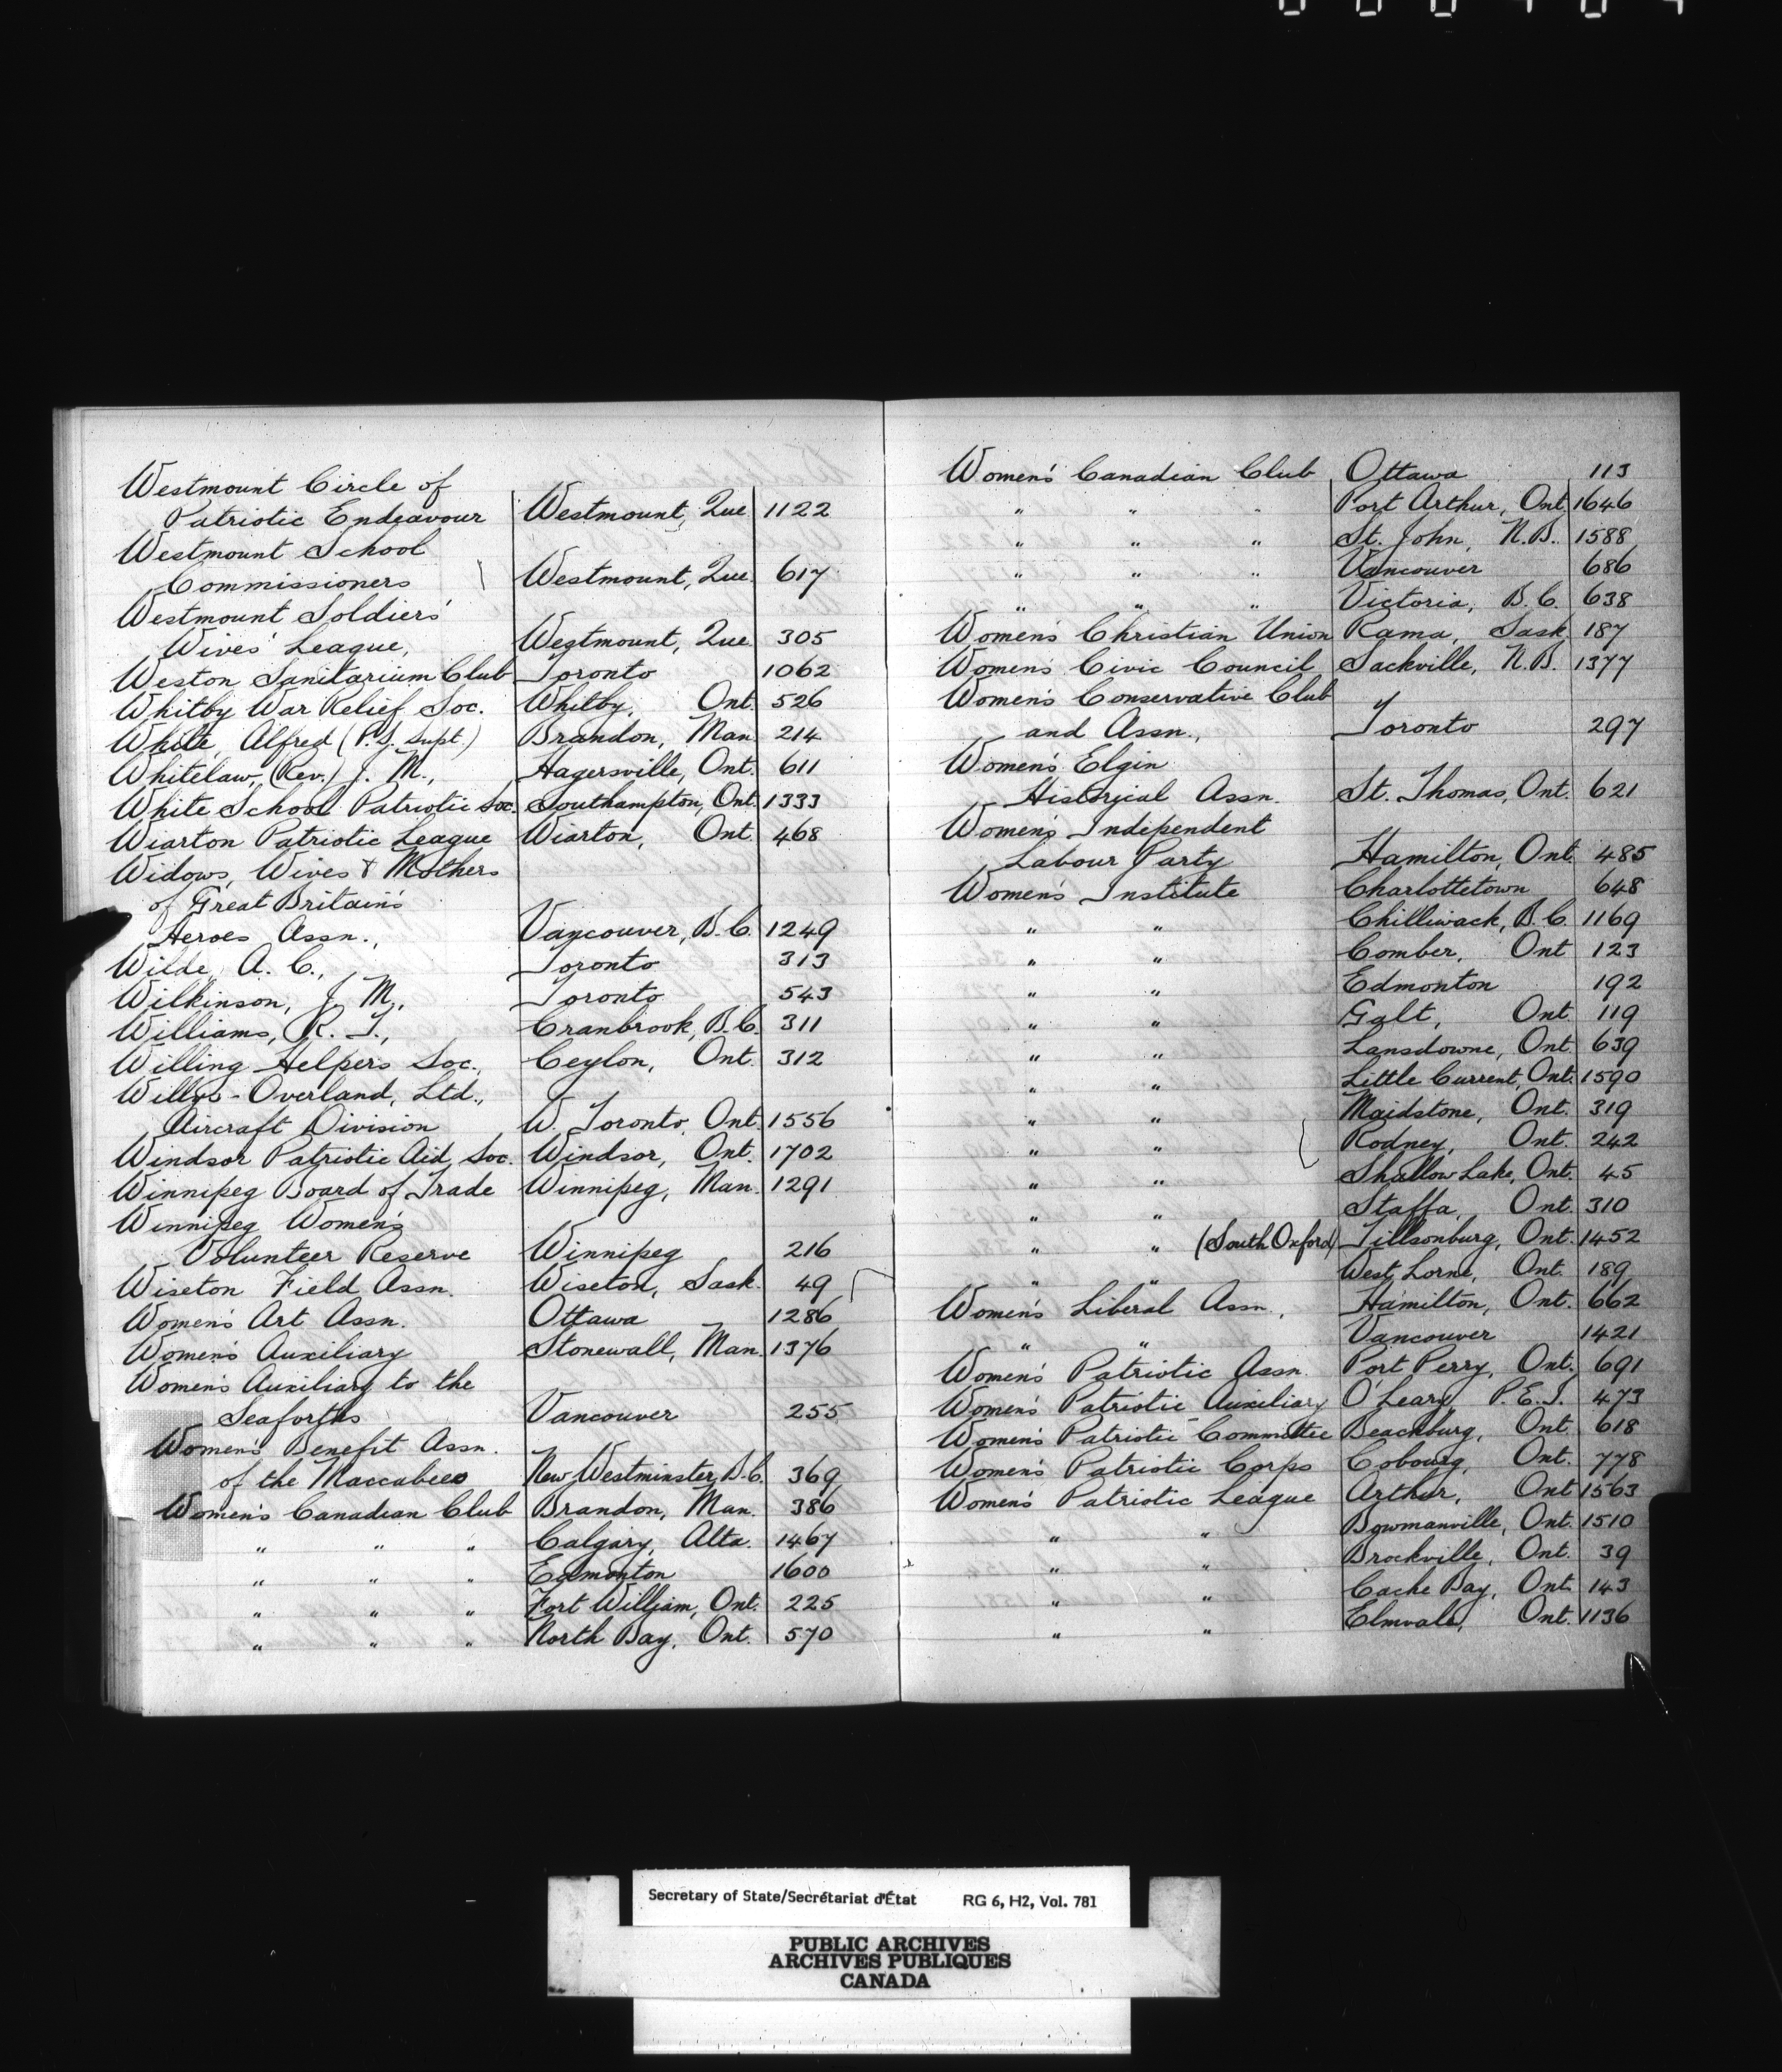 Westmount Circle of
Patriotic Endeavour Westmount, Que 1122
Westmount School
Commissioners Westmount, Que. 617
Westmount Soldiers'
Wives' League, Westmount, Que. 305
Weston Sanitarium Club Toronto 1062
Whitby War Relief Soc. Whitby, Ont. 526
White, Alfred (P.S. Supt.) Brandon, Man. 214
Whitelaw, (Rev.) J. M., Hagersville, Ont. 611
White School Patriotic Soc. Southampton, Ont. 1333
Wiarton Patriotic League Wiarton, Ont. 468
Widows, Wives & Mothers
of Great Britain's
Heroes Assn., Vancouver, B.C. 1249
Wilde, A. C., Toronto 313
Wilkinson, J. M., Toronto 543
Williams, R. T., Cranbrook, B.C. 311
Willing Helpers Soc., Ceylon, Ont. 312
Willys-Overland, Ltd.,
Aircraft Division W. Toronto, Ont. 1556
Windsor Patriotic Aid Soc. Windsor, Ont. 1702
Winnipeg Board of Trade Winnipeg, Man. 1291
Winnipeg Women's
Volunteer Reserve Winnipeg 216
Wiseton Field Assn. Wiseton, Sask. 49
Women's Art Assn. Ottawa 1286
Women's Auxiliary Stonewall, Man. 1376
Women's Auxiliary to the
Seaforths Vancouver 255
Women's Benefit Assn.
of the Maccabees New Westminster, B.C. 369
Women's Canadian Club Brandon, Man. 386
" " " Calgary, Alta. 1467
" " " Edmonton 1600
" " " Fort William, Ont. 225
" " " North Bay, Ont. 570
Women's Canadian Club Ottawa 113
" " " Port Arthur, Ont. 1646
" " " St. John, N.B. 1588
" " " Vancouver 686
" " " Victoria, B.C. 638
Women's Christian Union Rama, Sask. 187
Women's Civic Council Sackville, N.B. 1377
Women's Conservative Club
and Assn., Toronto 297
Women's Elgin
Historical Assn. St. Thomas, Ont. 621
Women's Independent
Labour Party Hamilton, Ont. 485
Women's Institute Charlottetown 648
" " Chilliwack, B.C. 1169
" " Comber, Ont 123
" " Edmonton 192
" " Galt, Ont. 119
" " Lansdowne, Ont. 639
" " Little Current, Ont. 1590
" " Maidstone, Ont. 319
" " Rodney, Ont. 242
" " Shallow Lake, Ont. 45
" " Staffa, Ont. 310
" " (South Oxford) Tillsonburg, Ont. 1452
" " West Lorne, Ont. 189
Women's Liberal Assn., Hamilton, Ont. 662
" " Vancouver 1421
Women's Patriotic Assn. Port Perry, Ont. 691
Women's Patriotic Auxiliary O'Leary, P.E.I. 473
Women's Patriotic Committee Beachburg, Ont. 618
Women's Patriotic Corps Cobourg, Ont. 778
Women's Patriotic League Arthur, Ont 1563
" " Bowmanville, Ont. 1510
" " Brockville, Ont. 39
" " Cache Bay, Ont 143
" " Elmvale, Ont. 1136
Secretary of State/Secrétariat d'État RG 6, H2, Vol. 781
PUBLIC ARCHIVES
ARCHIVES PUBLIQUES
CANADA